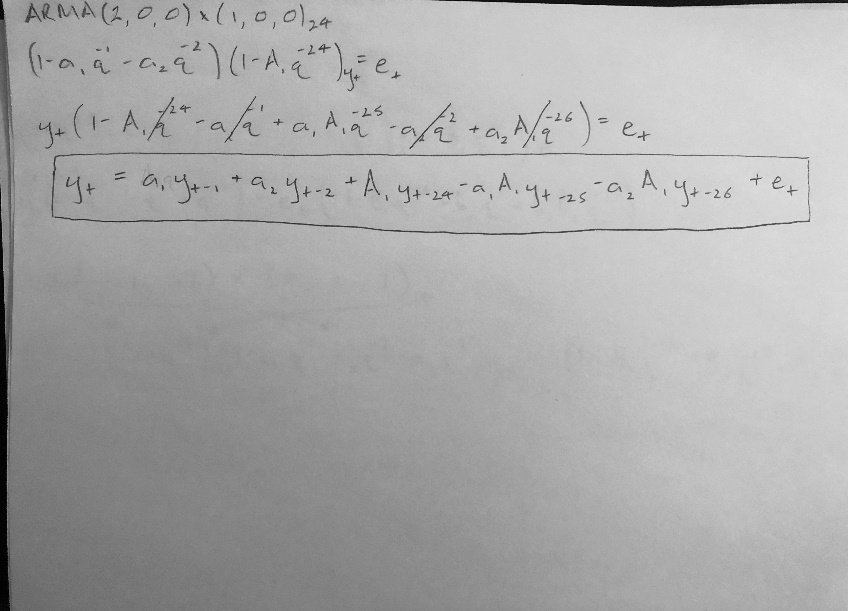 ARMA(2,0,0)x(1,0,0)₂₄
(1-a₁q⁻¹-a₂q⁻²)(1-A₁q⁻²⁴)yₜ=eₜ
yₜ(1-A₁q⁻²⁴-a₁q⁻¹+a₁A₁q⁻²⁵-a₂q⁻²+a₂A₁q⁻²⁶)=eₜ
yₜ = a₁yₜ₋₁+a₂yₜ₋₂+A₁yₜ₋₂₄-a₁A₁yₜ₋₂₅-a₂A₁yₜ₋₂₆+eₜ